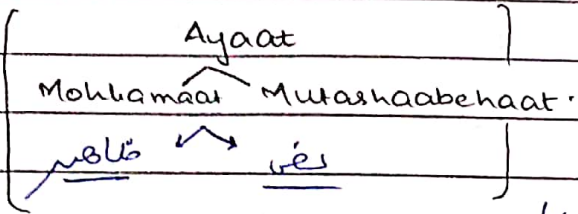 Ayaat
Mohkamaat Mutashaabehaat.
ظاهر نص